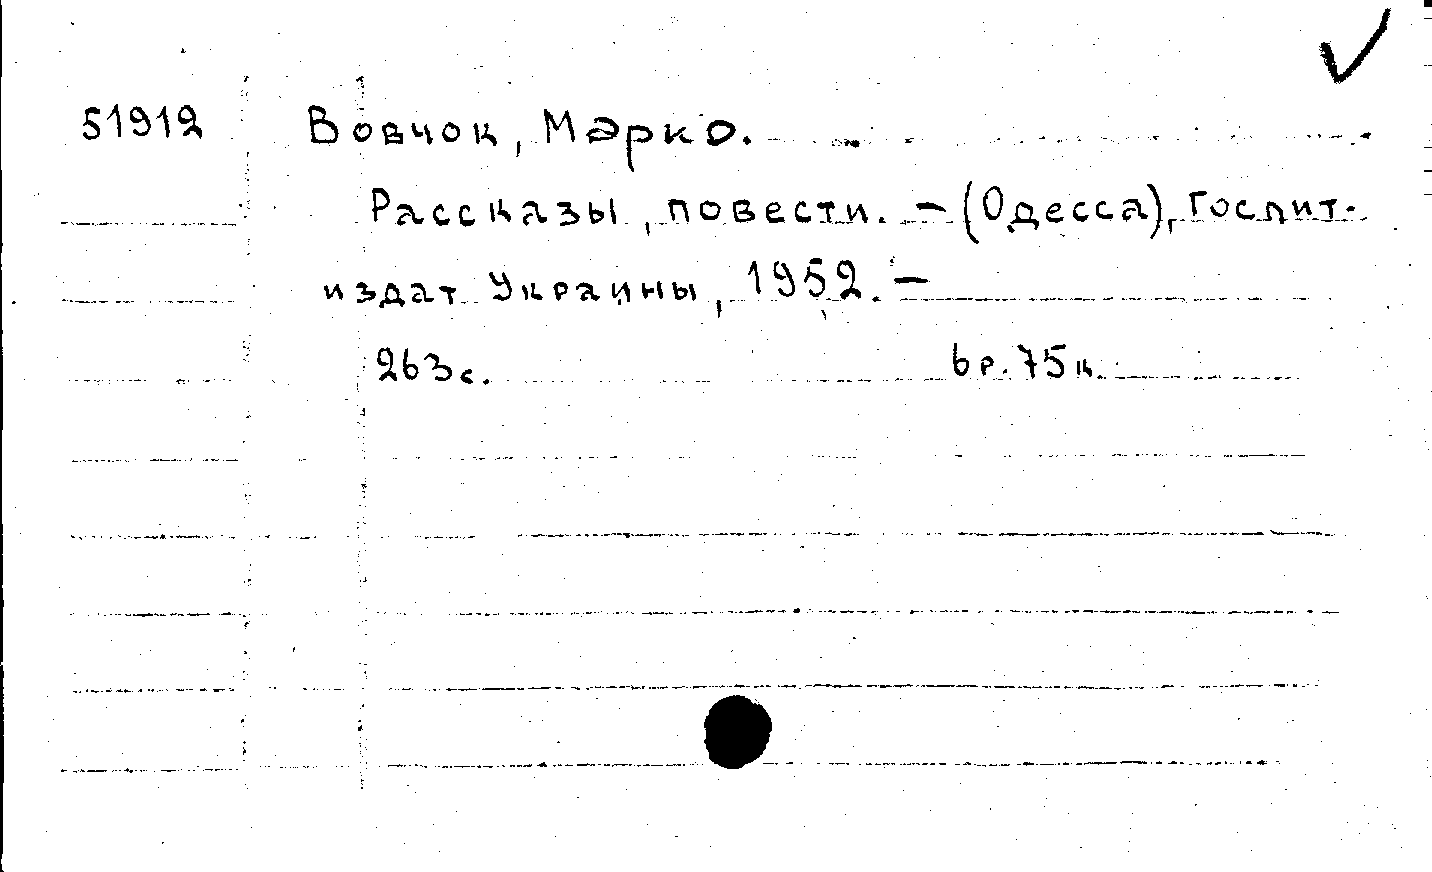 51912 Вовчок, Марко.
Рассказы, повести. – (Одесса), Гослит-
издат Украины, 1952. –
263 с. 6 р. 75 к.